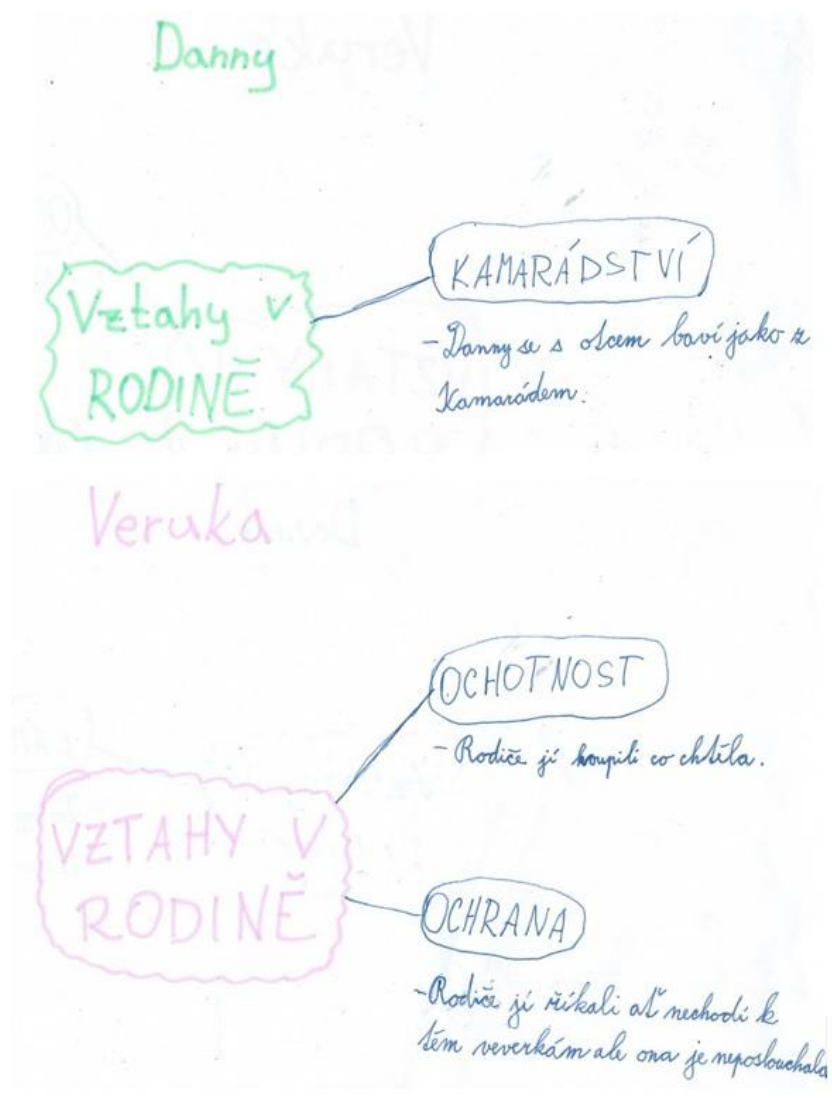 Danny
Vztahy v
RODINĚ
KAMARÁDSTVÍ
- Danny se s otcem baví jako z
Kamarádem.
Veruka
VZTAHY V
RODINĚ
OCHOTNOST
- Rodiče jí koupili co chtěla.
OCHRANA
- Rodiče jí říkali ať nechodí k
těm veverkám ale ona je neposlouchala